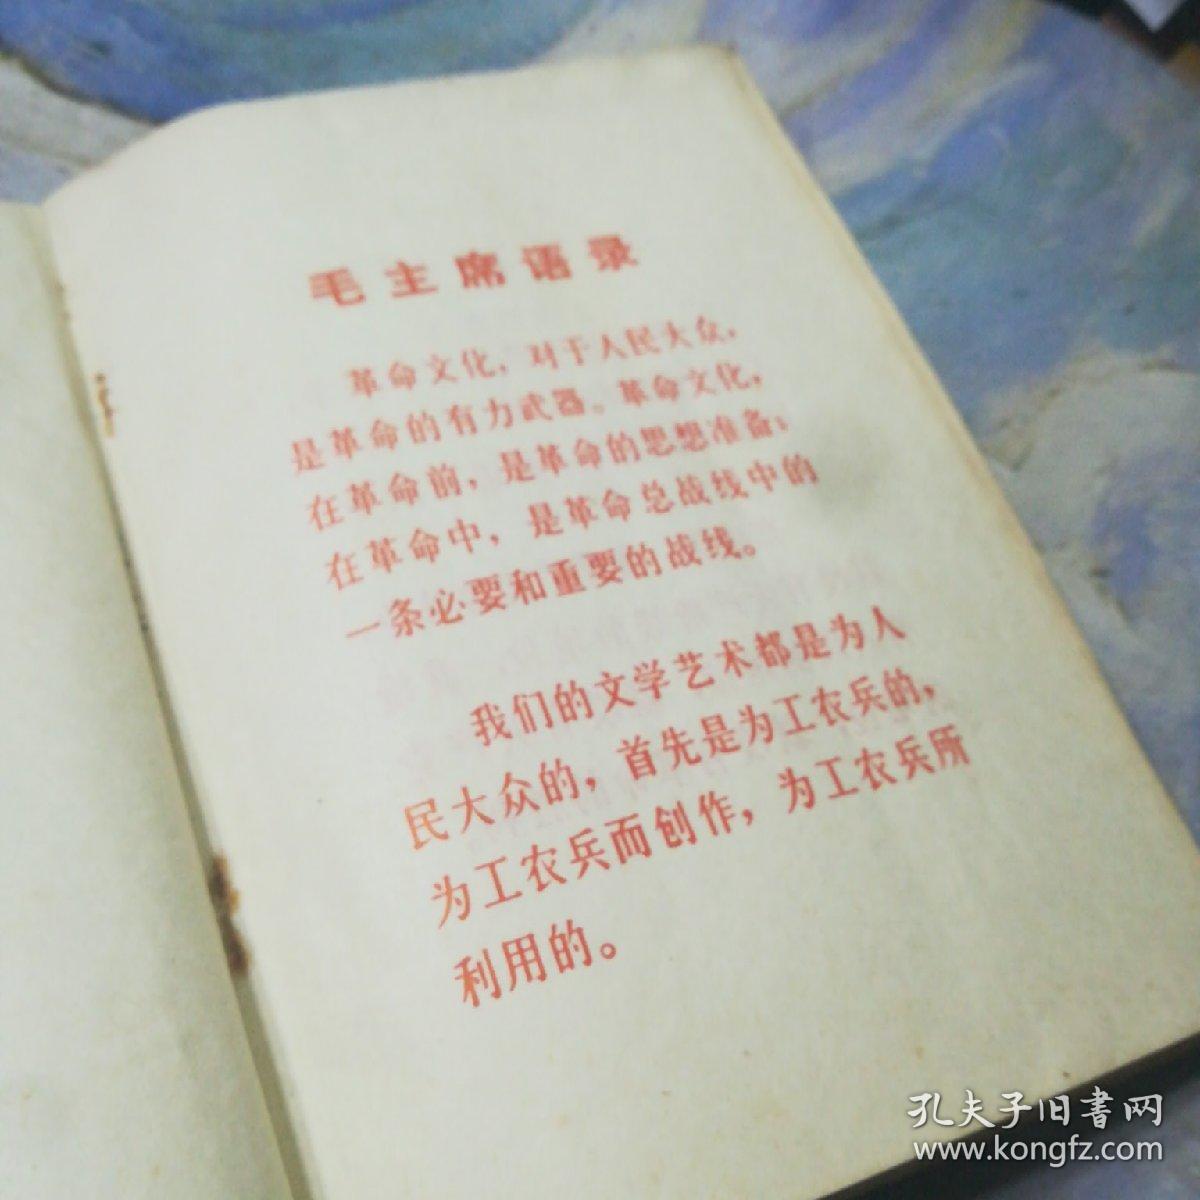 毛主席语录
革命文化，对于人民大众，
是革命的有力武器。革命文化，
在革命前，是革命的思想准备；
在革命中，是革命总战线中的
一条必要和重要的战线。
我们的文学艺术都是为人
民大众的，首先是为工农兵的，
为工农兵而创作，为工农兵所
利用的。
孔夫子旧書网
www.kongfz.com